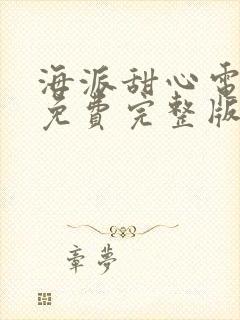 海派甜心電
免費完整版
章夢